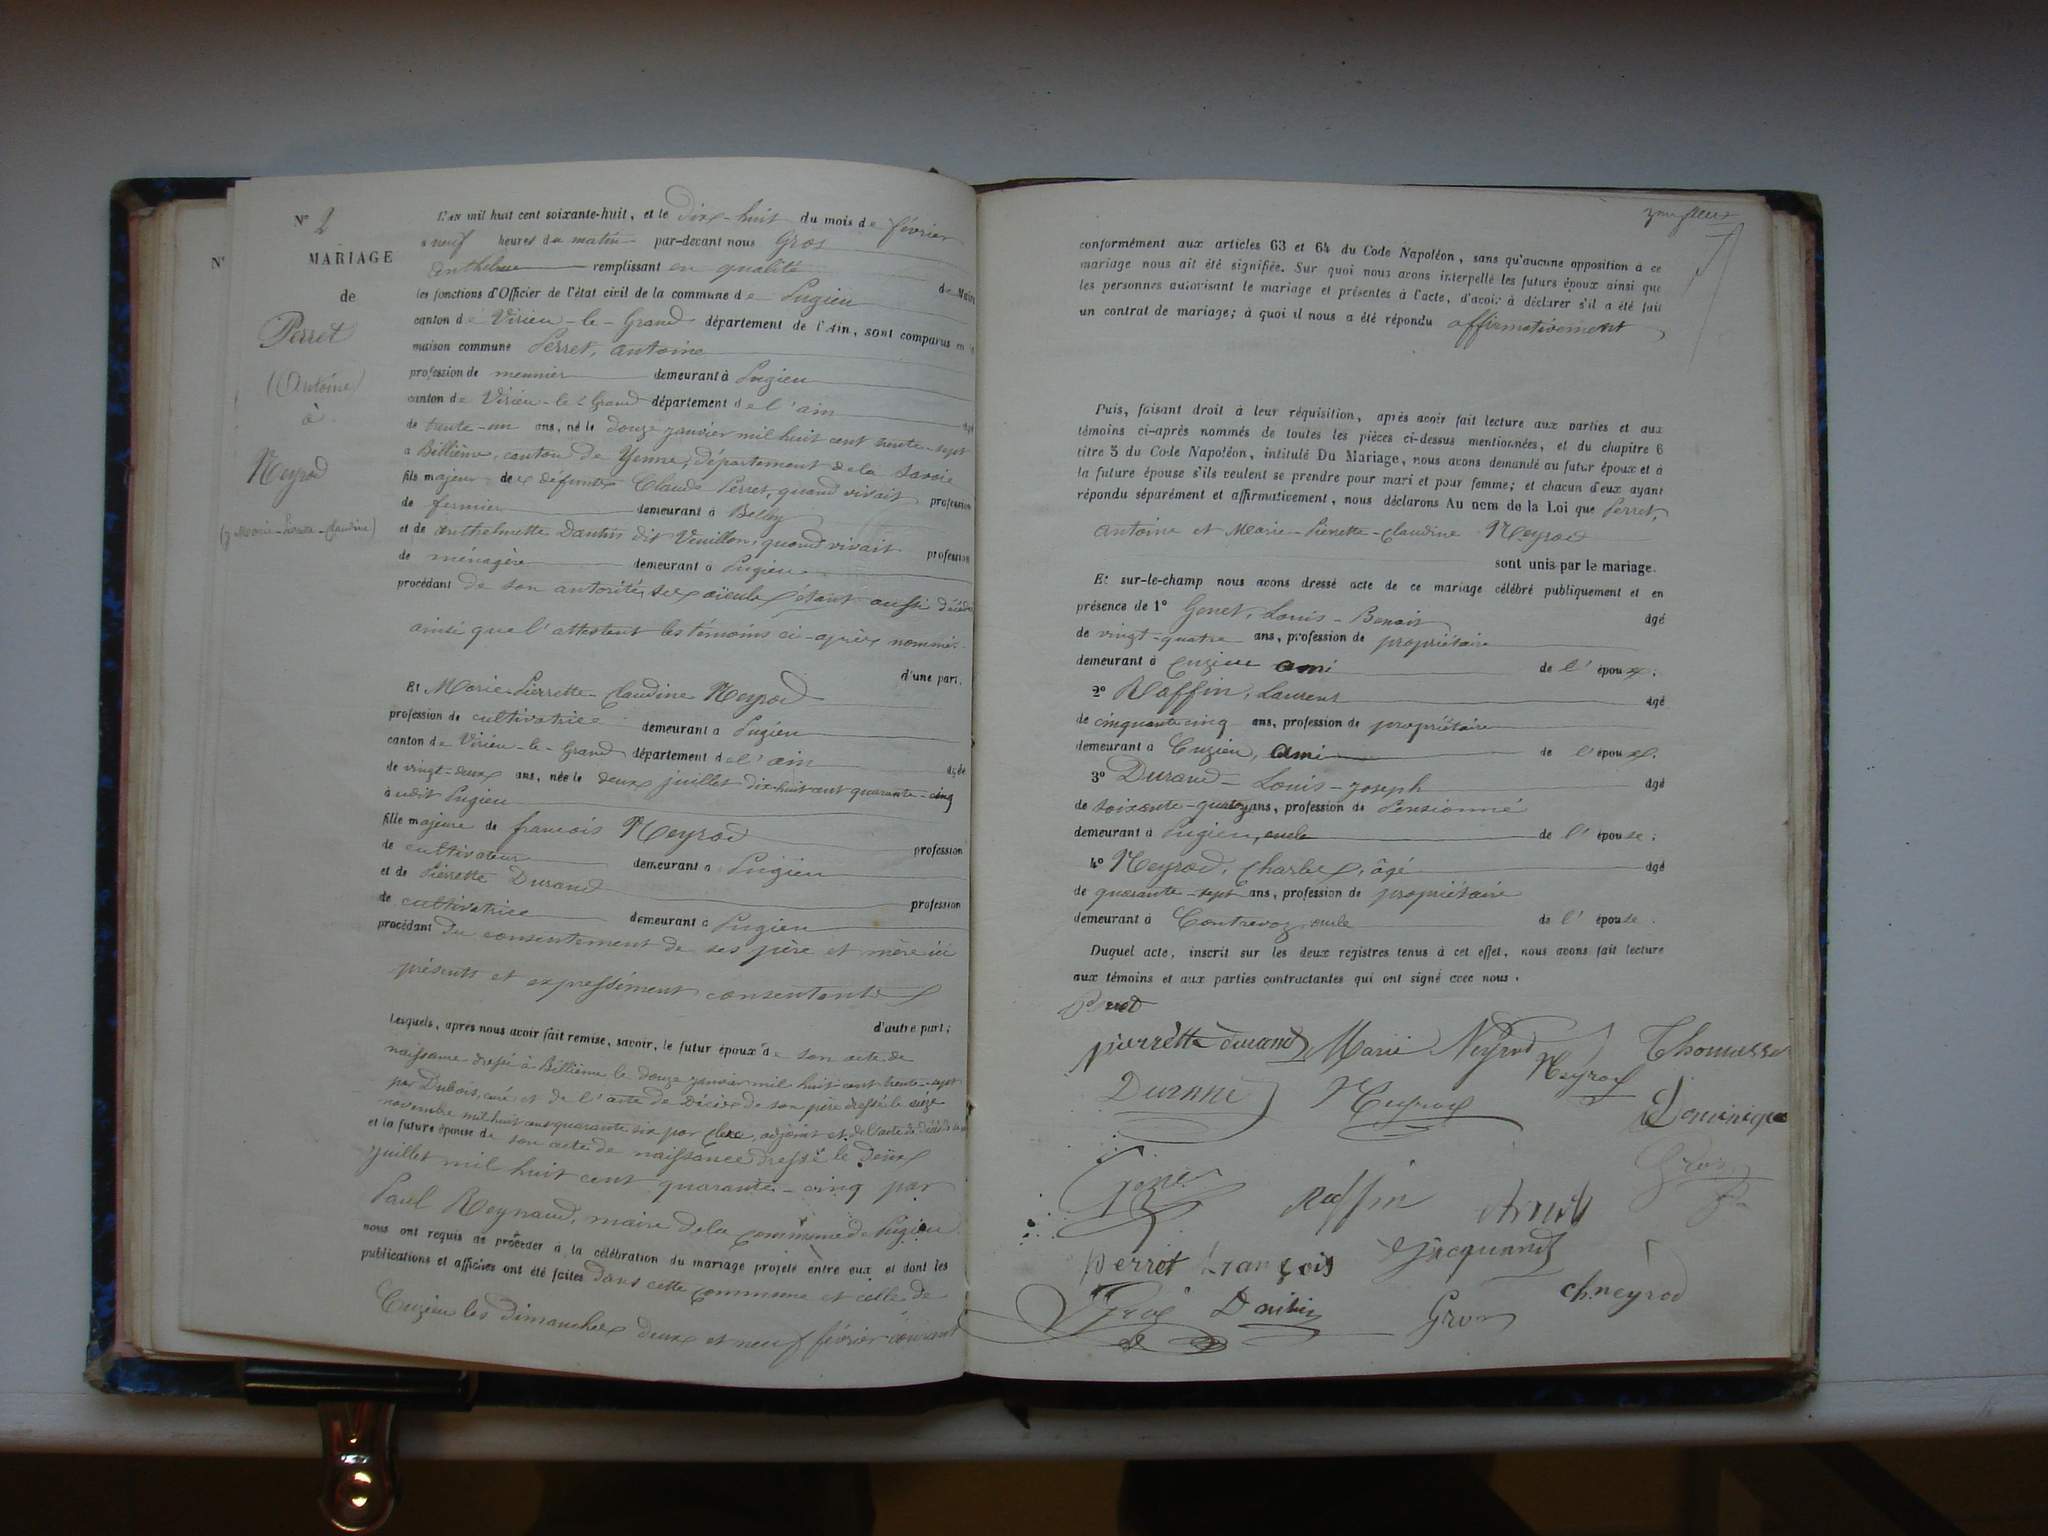 N° 2
MARIAGE
de
Perret
(Antoine)
à
Neyrod
(Marie-Pierrette-Claudine)
N°
L'AN mil huit cent soixante-huit, et le Dix-huit du mois de février
à neuf heures du matin par-devant nous Gros
Anthelme remplissant en qualité de Maire
les fonctions d'Officier de l'état civil de la commune de Pugieu
canton de Virieu-le-Grand département de l'Ain, sont comparus en la
maison commune Perret, Antoine
profession de meunier demeurant à Pugieu
canton de Virieu-le-Grand département de l'ain âgé
de trente-un ans, né le douze janvier mil huit cent trente-sept
à Billième, canton de Yenne, département de la Savoie
fils majeur de défunts Claude Perret, quand vivait profession
de fermier demeurant à Belley
et de Anthelmette Dantin dit Veuillon, quand vivait profession
de ménagère demeurant à Pugieu
procédant de son autorité, ses aïeules étant aussi décédés
ainsi que l'attestent les témoins ci-après nommés
d'une part,
Et Marie-Pierrette-Claudine Neyrod
profession de cultivatrice demeurant à Pugieu
canton de Virieu-le-Grand département de l'ain âgée
de vingt-deux ans, née le deux juillet dix-huit cent quarante-cinq
à udit Pugieu
fille majeure de françois Neyrod profession
de cultivateur demeurant à Pugieu
et de Pierrette Durand profession
de cultivatrice demeurant à Pugieu
procédant du consentement de ses père et mère ici
présents et expressément consentants
d'autre part;
Lesquels, après nous avoir fait remise, savoir, le futur époux de son acte de
naissance dressé à Billième le douze janvier mil huit cent trente-sept
par Dubois, curé et de l'acte de décès de son père dressé le seize
novembre mil huit cent quarante six par Clerc, adjoint et de l'acte de décès
et la future épouse de son acte de naissance dressé le deux
juillet mil huit cent quarante-cinq par
Paul Reynaud, maire de la commune de Pugieu
nous ont requis de procéder à la célébration du mariage projeté entre eux et dont les
publications et affiches ont été faites dans cette commune et celle de
Cuzieu les dimanches deux et neuf février courant
conformément aux articles 63 et 64 du Code Napoléon, sans qu'aucune opposition à ce
mariage nous ait été signifiée. Sur quoi nous avons interpellé les futurs époux ainsi que
les personnes autorisant le mariage et présentes à l'acte, d'avoir à déclarer s'il a été fait
un contrat de mariage; à quoi il nous a été répondu affirmativement
Puis, faisant droit à leur réquisition, après avoir fait lecture aux parties et aux
témoins ci-après nommés de toutes les pièces ci-dessus mentionnées, et du chapitre 6
titre 5 du Code Napoléon, intitulé Du Mariage, nous avons demandé au futur époux et à
la future épouse s'ils veulent se prendre pour mari et pour femme; et chacun d'eux ayant
répondu séparément et affirmativement, nous déclarons Au nom de la Loi que Perret,
Antoine et Marie-Pierrette-Claudine Neyrod
sont unis par le mariage.
Et sur-le-champ nous avons dressé acte de ce mariage célébré publiquement et en
présence de 1° Genet, Louis-Benoit âgé
de vingt-quatre ans, profession de propriétaire
demeurant à Cuzieu ami de l'époux;
2° Raffin, Laurent âgé
de cinquante cinq ans, profession de propriétaire
demeurant à Cuzieu, ami de l'époux.
3° Durand Louis-Joseph âgé
de soixante-quatorze ans, profession de Pensionné
demeurant à Pugieu, oncle de l'épouse;
4° Neyrod, Charles, âgé âgé
de quarante-sept ans, profession de propriétaire
demeurant à Contrevoz, oncle de l'épouse.
Duquel acte, inscrit sur les deux registres tenus à cet effet, nous avons fait lecture
aux témoins et aux parties contractantes qui ont signé avec nous.
Perret
pierrette durand Marie Neyrod Neyrod Thomasset
Durand Neyrod Dominique
Genet Raffin Gros
perret François Jacquand
Gros Dantin Gros ch. neyrod